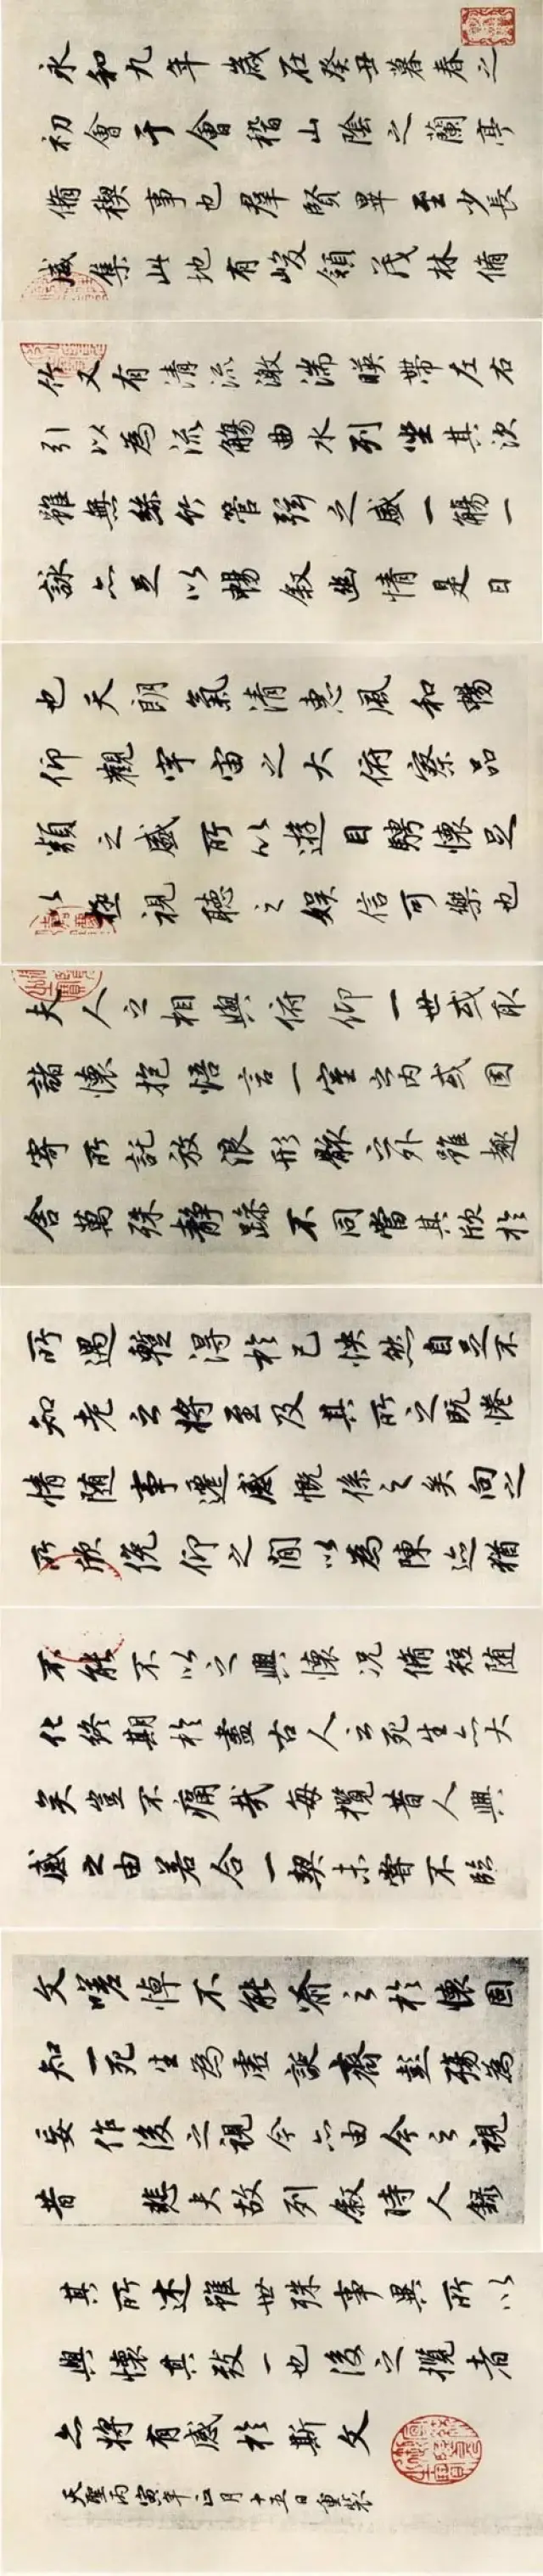 永和九年歲在癸丑暮春之
初會于會稽山陰之蘭亭
脩稧事也羣賢畢至少長
咸集此地有峻領茂林脩
竹又有清流激湍暎帶左右
引以為流觴曲水列坐其次
雖無絲竹管弦之盛一觴一
詠亦足以暢叙幽情是日
也天朗氣清惠風和暢
仰觀宇宙之大俯察品
類之盛所以遊目騁懷足
以極視聽之娛信可樂也
夫人之相與俯仰一世或取
諸懷抱悟言一室之內或因
寄所託放浪形骸之外雖趣
舍萬殊靜躁不同當其欣於
所遇暫得於己怏然自足不
知老之將至及其所之既惓
情隨事遷感慨係之矣向之
所欣俛仰之閒以為陳迹猶
不能不以之興懷況脩短隨
化終期於盡古人云死生亦大
矣豈不痛哉每攬昔人興
感之由若合一契未嘗不臨
文嗟悼不能喻之於懷固
知一死生為虛誕齊彭殤為
妄作後之視今亦由今之視
昔 悲夫故列叙時人錄
其所述雖世殊事異所以
興懷其致一也後之攬者
亦將有感於斯文
天聖丙寅年正月十五日重裝